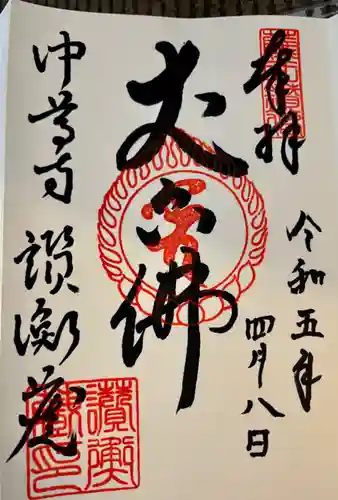 奉拝
令和五年
四月八日
大日佛
中尊寺 讃衡蔵
讃衡
蔵印